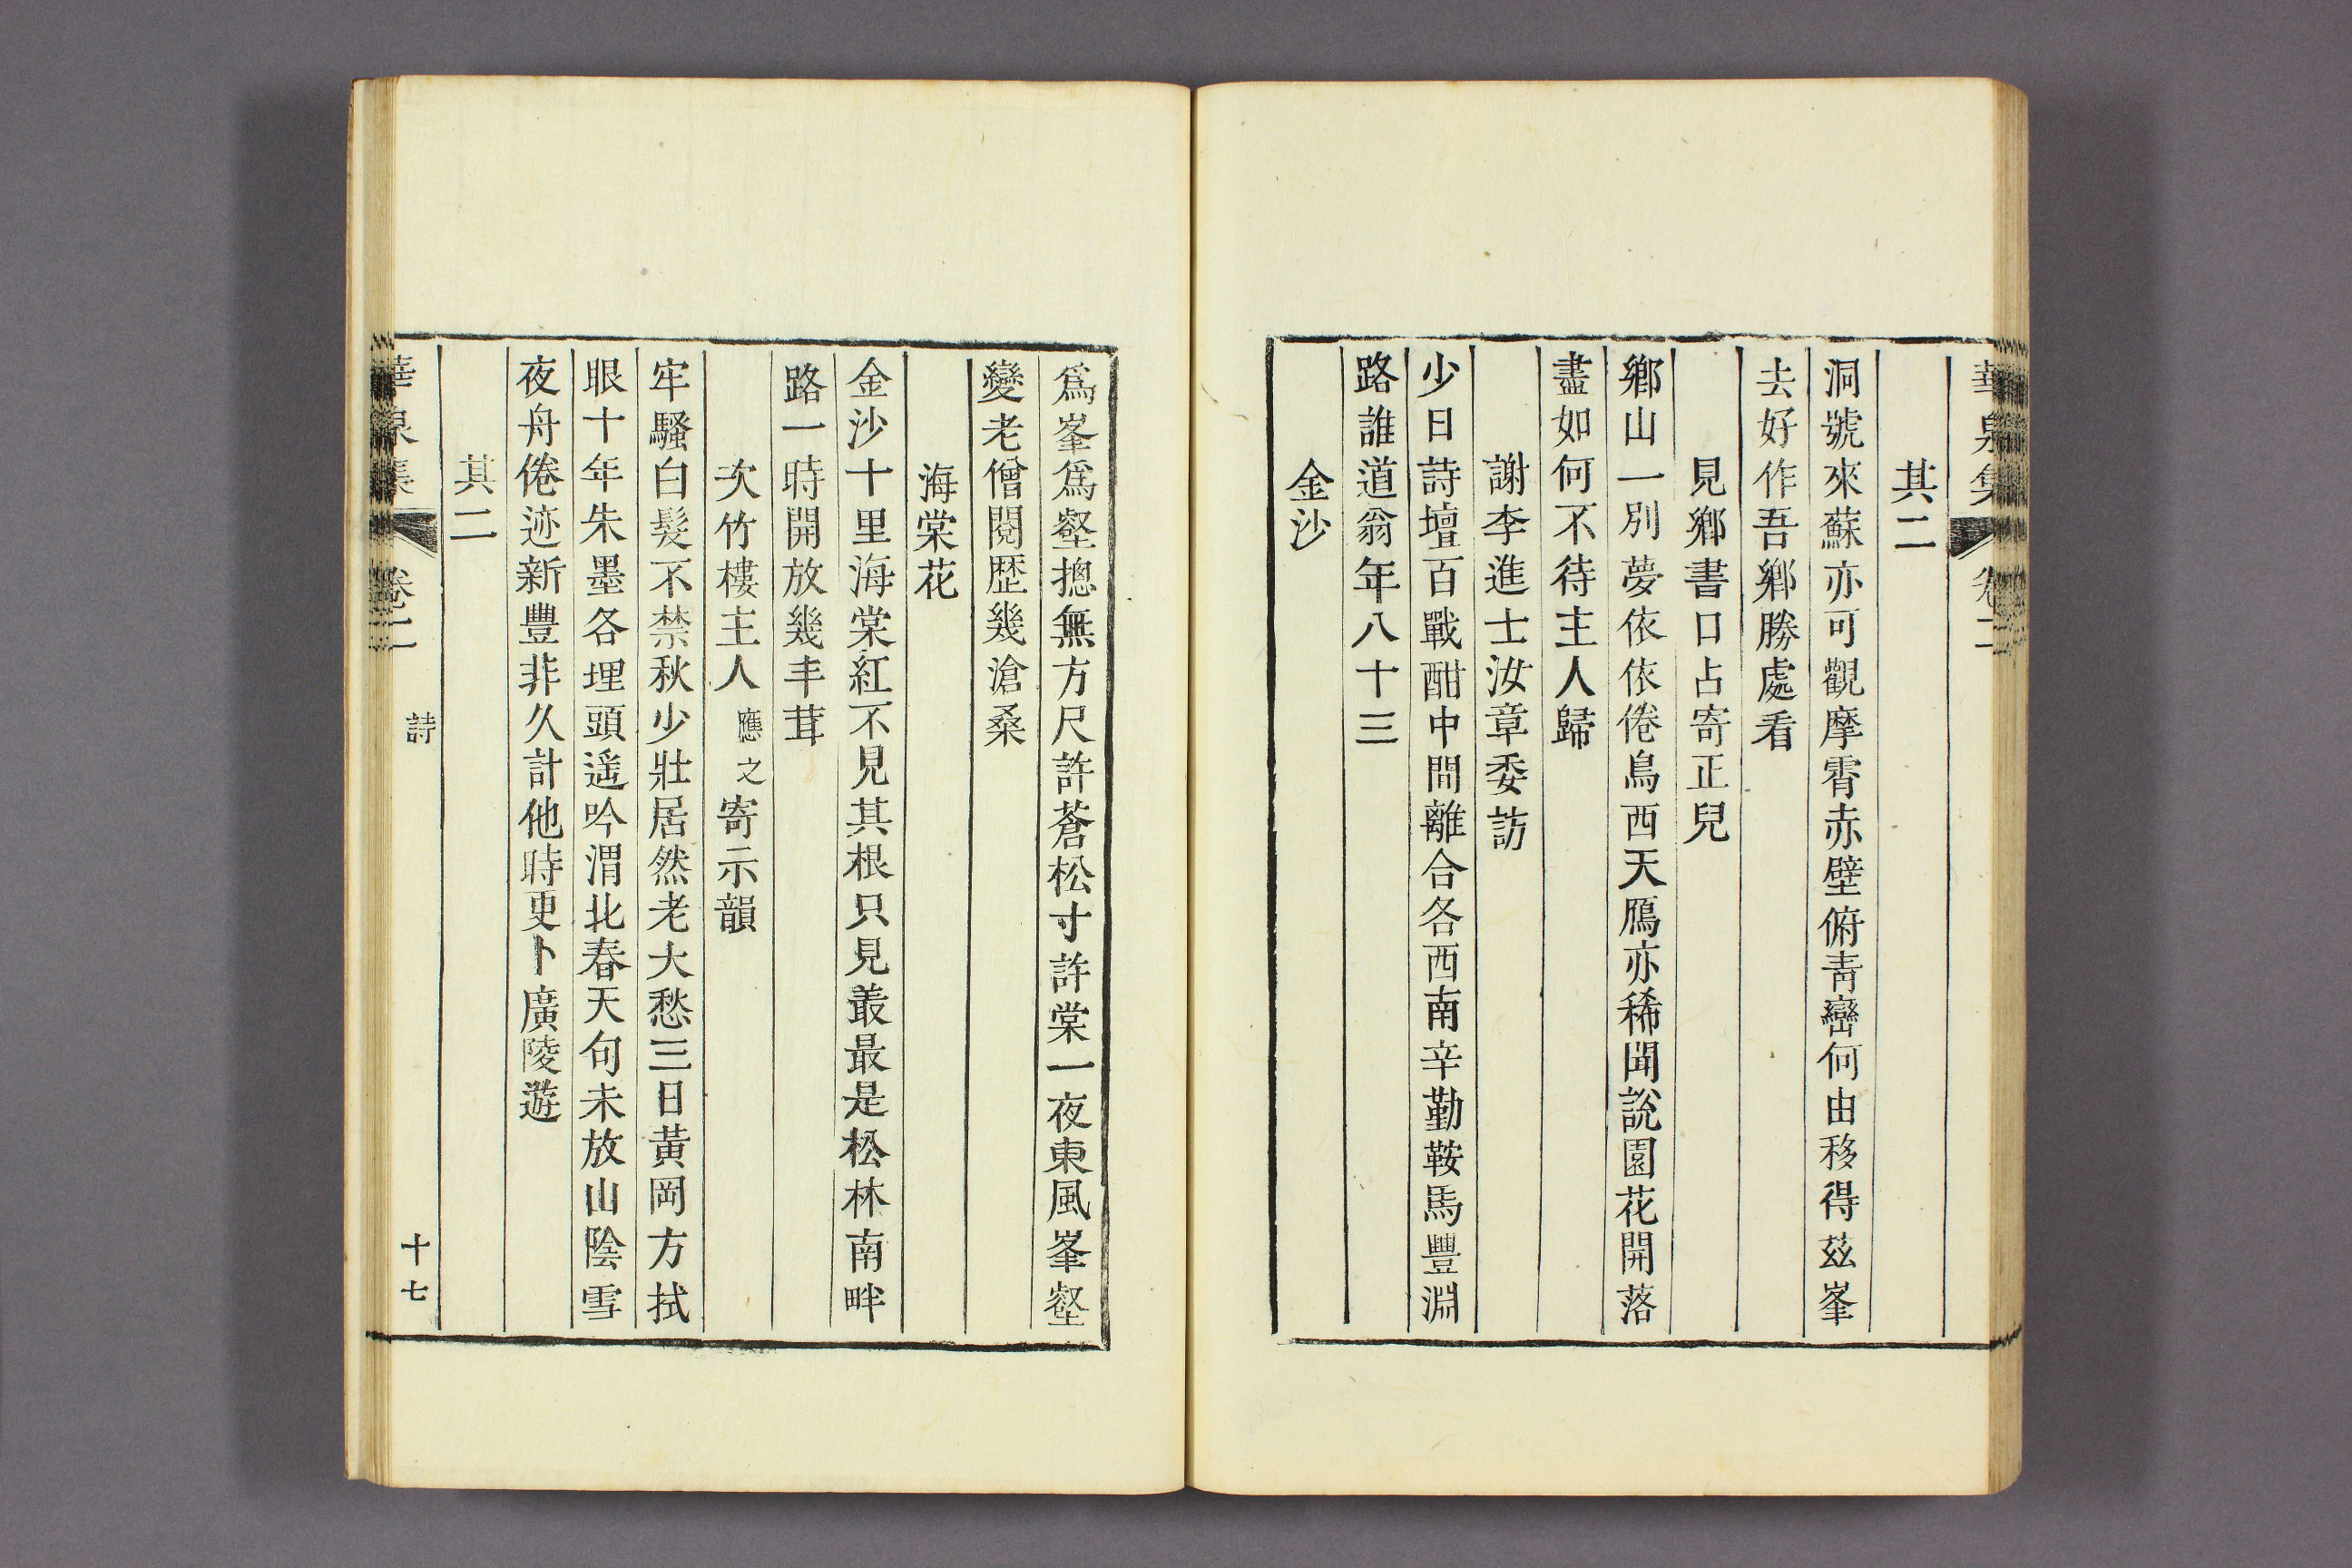 華泉集 卷二
其二
洞號來蘇亦可觀摩霄赤壁俯靑巒何由移得玆峯
去好作吾鄕勝處看
見鄕書口占寄正兒
鄕山一別夢依依倦鳥西天鴈亦稀聞說園花開落
盡如何不待主人歸
謝李進士汝章委訪
少日詩壇百戰酣中間離合各西南辛勤鞍馬豐淵
路誰道翁年八十三
金沙
爲峯爲壑摠無方尺許蒼松寸許棠一夜東風峯壑
變老僧閱歴幾滄桑
海棠花
金沙十里海棠紅不見其根只見叢最是松林南畔
路一時開放幾丰茸
次竹樓主人應之寄示韻
牢騷白髮不禁秋少壯居然老大愁三日黃岡方拭
眼十年朱墨各埋頭遙吟渭北春天句未放山陰雪
夜舟倦迹新豐非久計他時更卜廣陵遊
其二
華泉集 卷二 詩 十七